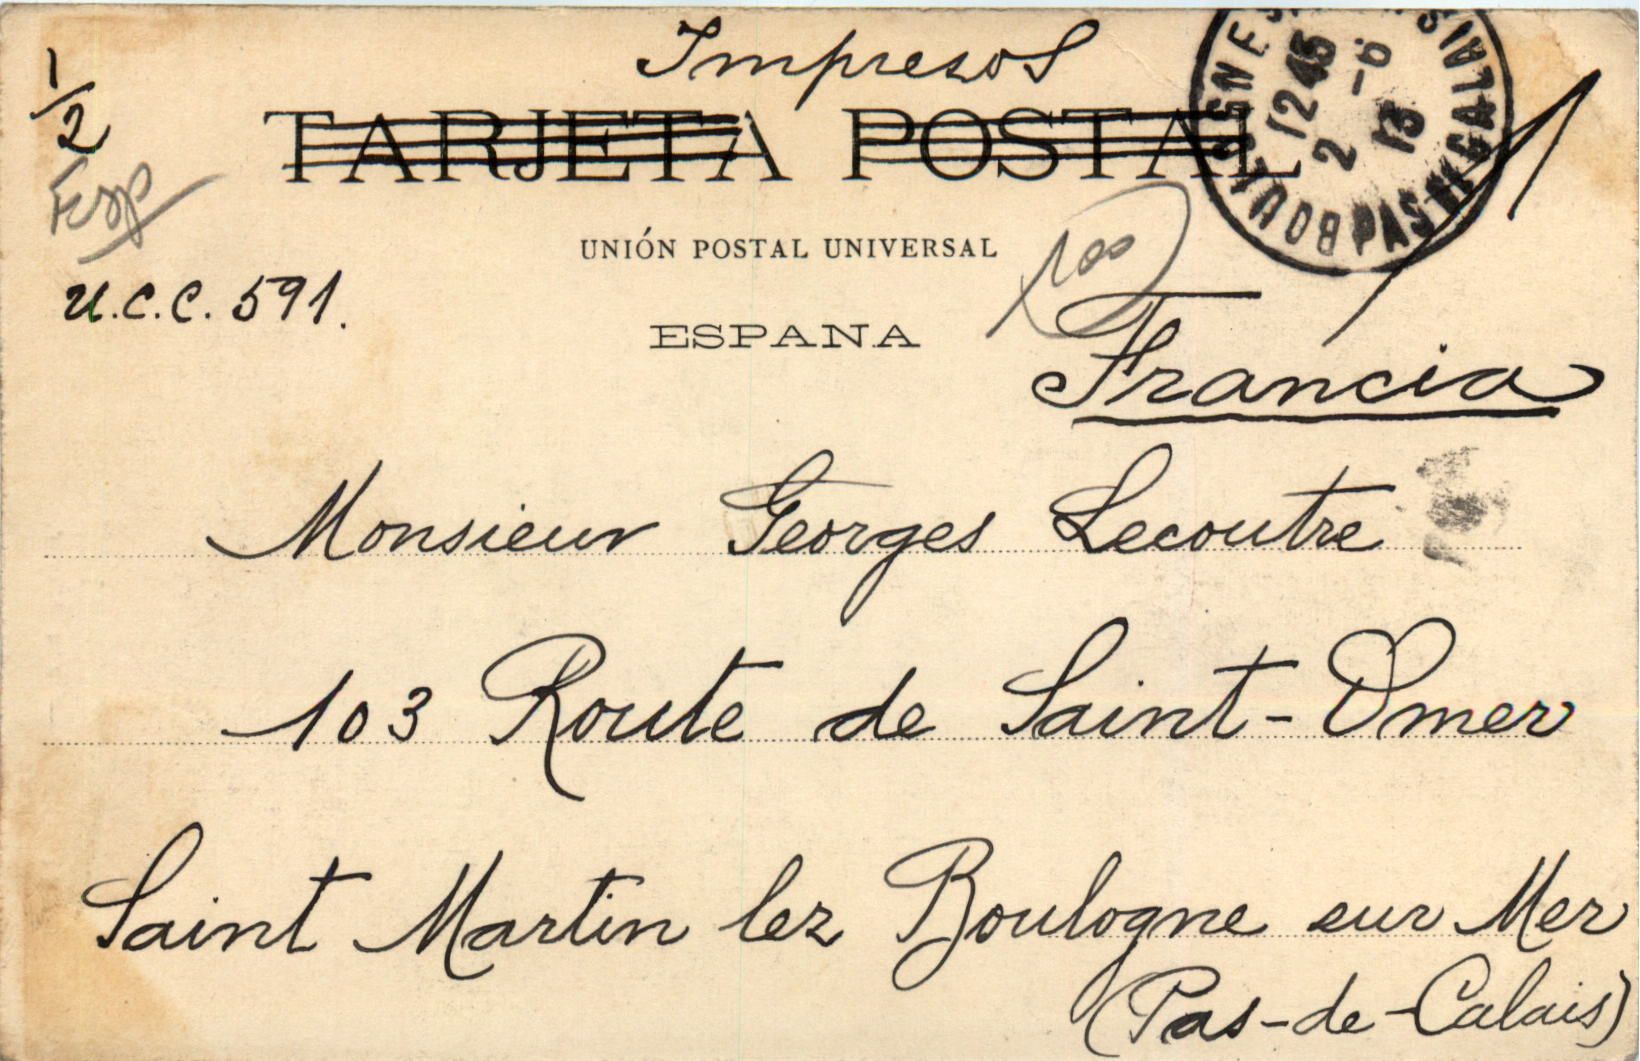 Impresos
1/2
TARJETA POSTAL
Esp
UNIÓN POSTAL UNIVERSAL
100
U.C.C. 591.
ESPAÑA
Francia
BOULOGNE S
PAS DE CALAIS
1245
2 - 8
13
Monsieur Georges Lecoutre
103 Route de Saint-Omer
Saint Martin lez Boulogne sur Mer
(Pas-de-Calais)